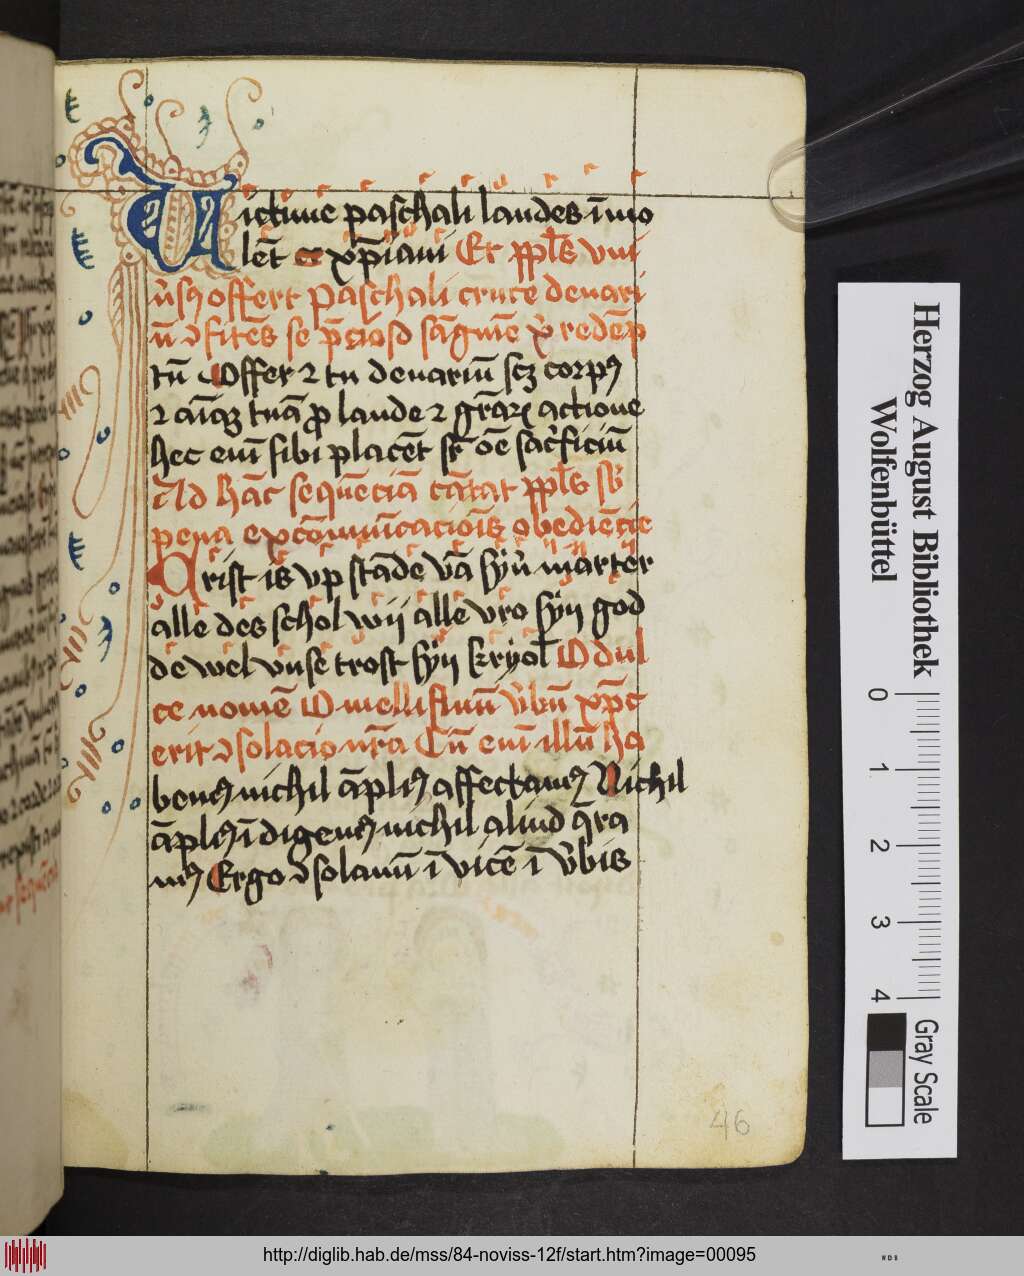 Victime paschali laudes īmo
lēt cc xp̄iani Et ppl̄s vni
ūsꝗ offert paschali cruce denari
ū ꝯfitēs se p̄ciosꝍ sāguīe xᵖ redēp
tū Offer ⁊ tu denariū scꝫ corpꝰ
⁊ aīaꝫ tuā ꝓ laude ⁊ grāꝝ actione
hec enī sibi placēt sr̄ oē sac̉ficiū
Ad hāc sequēciā cātat ppl̄s sb̉
pena excōmunicacionīs obediēcie
Crist is vp stādē vā syn̉ marter
alle des schol wij alle vro syn god
de wel vnse trost syn kryol̄ O dul
ce nomē O mellifluū v̉bū xp̄c
erit ꝯsolacio nr̄a Cū enī illū ha
bemꝰ nichil āpliꝰ affectamꝰ Nichil
āpliꝰ īdigemꝰ nichil aliud q̄ra
mꝰ Ergo ꝯsolamī īvicē ī v̉bis
46
Herzog August Bibliothek
Wolfenbüttel
0 1 2 3 4
Gray Scale
http://diglib.hab.de/mss/84-noviss-12f/start.htm?image=00095